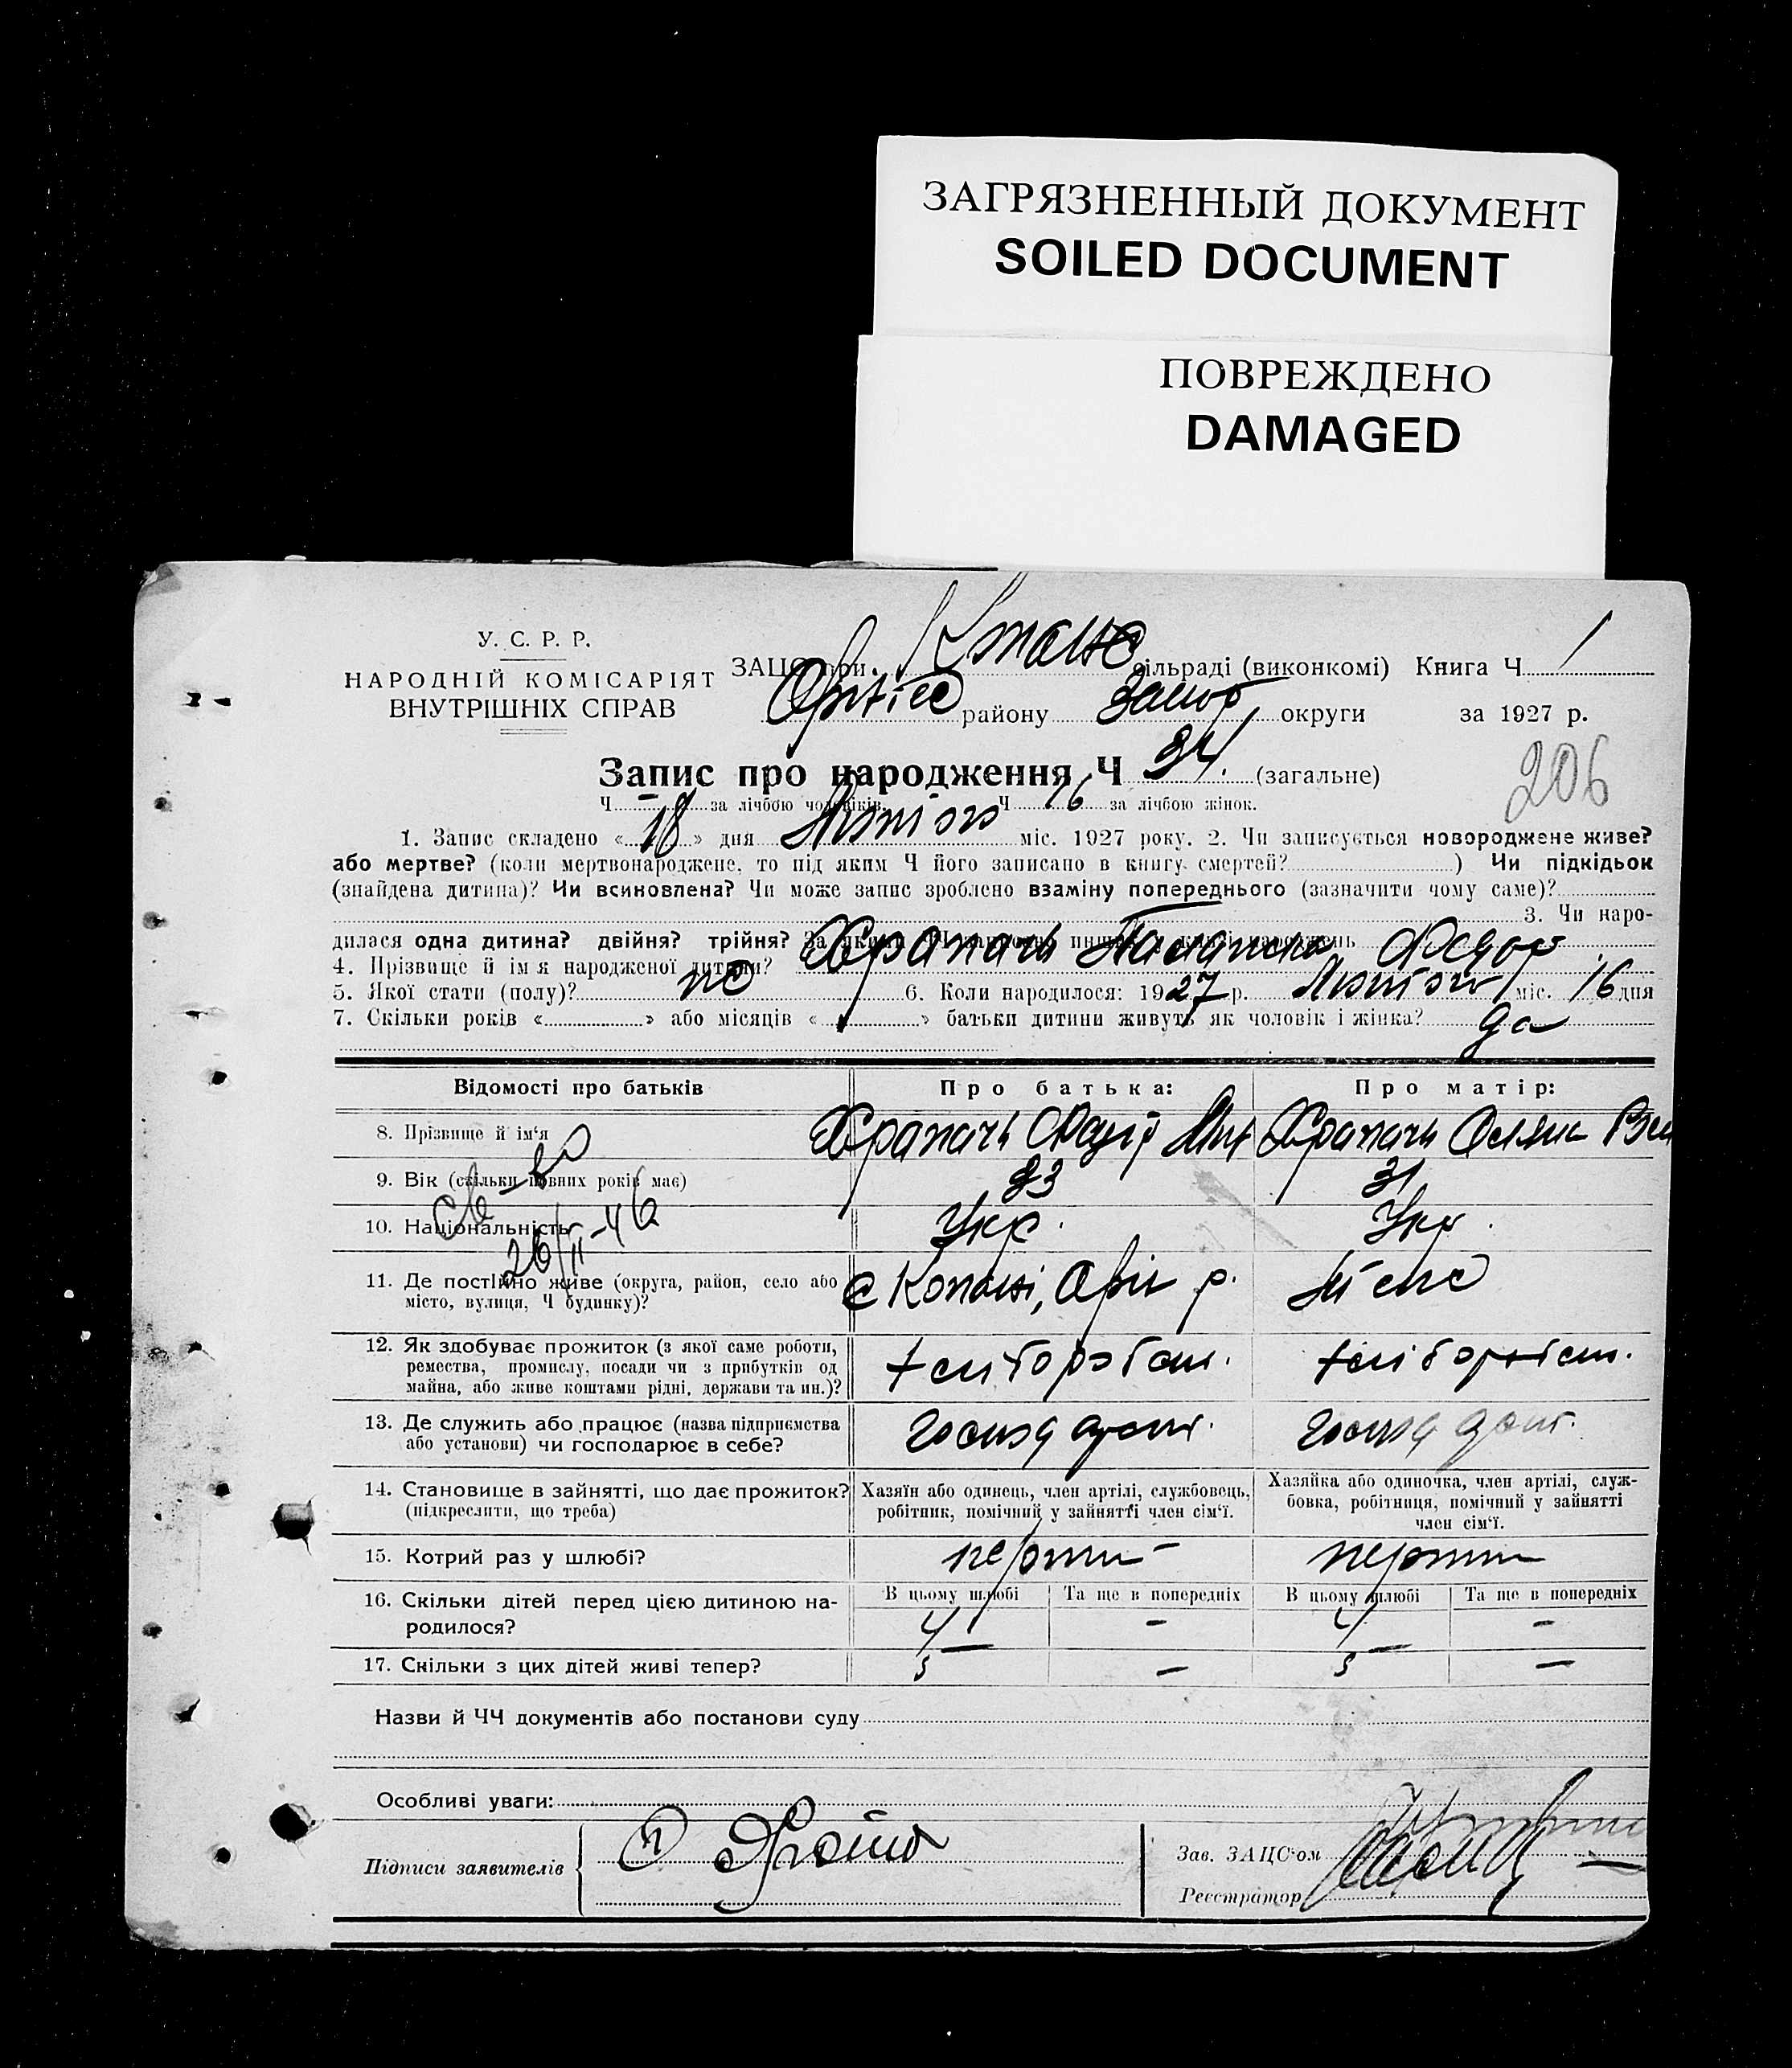 ЗАГРЯЗНЕННЫЙ ДОКУМЕНТ
SOILED DOCUMENT
ПОВРЕЖДЕНО
DAMAGED
У. С. Р. Р.
НАРОДНІЙ КОМІСАРІЯТ
ВНУТРІШНІХ СПРАВ
ЗАЦС при сільраді (виконкомі) Книга Ч 1
району Запор округи за 1927 р.
Запис про народження Ч 34 (загальне)
206
Ч - за лічбою чоловіків. Ч 16 за лічбою жінок.
1. Запис складено « 18 » дня Лютого міс. 1927 року. 2. Чи записується новороджене живе?
або мертве? (коли мертвонароджене, то під яким Ч його записано в книгу смертей? ) Чи підкідьок
(знайдена дитина)? Чи всиновлена? Чи може запис зроблено взаміну попереднього (зазначити чому саме)?
3. Чи наро-
дилася одна дитина? двійня? трійня? За якими ЧЧ народжень
4. Прізвище й ім'я народженої дитини? Храпачь Федор
5. Якої стати (полу)? 6. Коли народилося: 1927 р. Лютого міс. 16 дня
7. Скільки років « » або місяців « » батьки дитини живуть як чоловік і жінка? да
Відомості про батьків
Про батька:
Про матір:
8. Прізвище й ім'я
Храпачь
Храпачь
9. Вік (скільки повних років має)
33
31
св-во
26/II-46
10. Національність
Укр.
Укр.
11. Де постійно живе (округа, район, село або
місто, вулиця, Ч будинку)?
с Копані, Оріх р.
12. Як здобуває прожиток (з якої саме роботи,
ремества, промислу, посади чи з прибутків од
майна, або живе коштами рідні, держави та ин.)?
хліборобст.
хліборобст.
13. Де служить або працює (назва підприємства
або установи) чи господарює в себе?
14. Становище в зайнятті, що дає прожиток?
(підкреслити, що треба)
Хазяїн або одинець, член артілі, службовець,
робітник, помічний у зайнятті член сім'ї.
Хазяйка або одиночка, член артілі, служ-
бовка, робітниця, помічний у зайнятті
член сім'ї.
15. Котрий раз у шлюбі?
16. Скільки дітей перед цією дитиною на-
родилося?
В цьому шлюбі
Та ще в попередніх
В цьому шлюбі
Та ще в попередніх
4
-
4
-
17. Скільки з цих дітей живі тепер?
5
-
5
-
Назви й ЧЧ документів або постанови суду
Особливі уваги:
Підписи заявителів
Зав. ЗАЦС'ом
Реєстратор